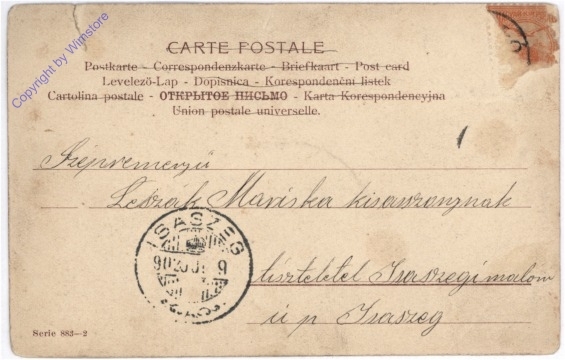 Copyright by Wimstore
CARTE POSTALE
Postkarte - Correspondenzkarte - Briefkaart - Post card
Levelező-Lap - Dopisnica - Korespondenční listek
Cartolina postale - ОТКРЫТОЕ ПИСЬМО - Karta Korespondencyjna
Union postale universelle.
Leszák Mariska kisasszonynak
ISASZEG
tisztelettel Isaszegi malom
u p Isaszeg
Serie 883-2